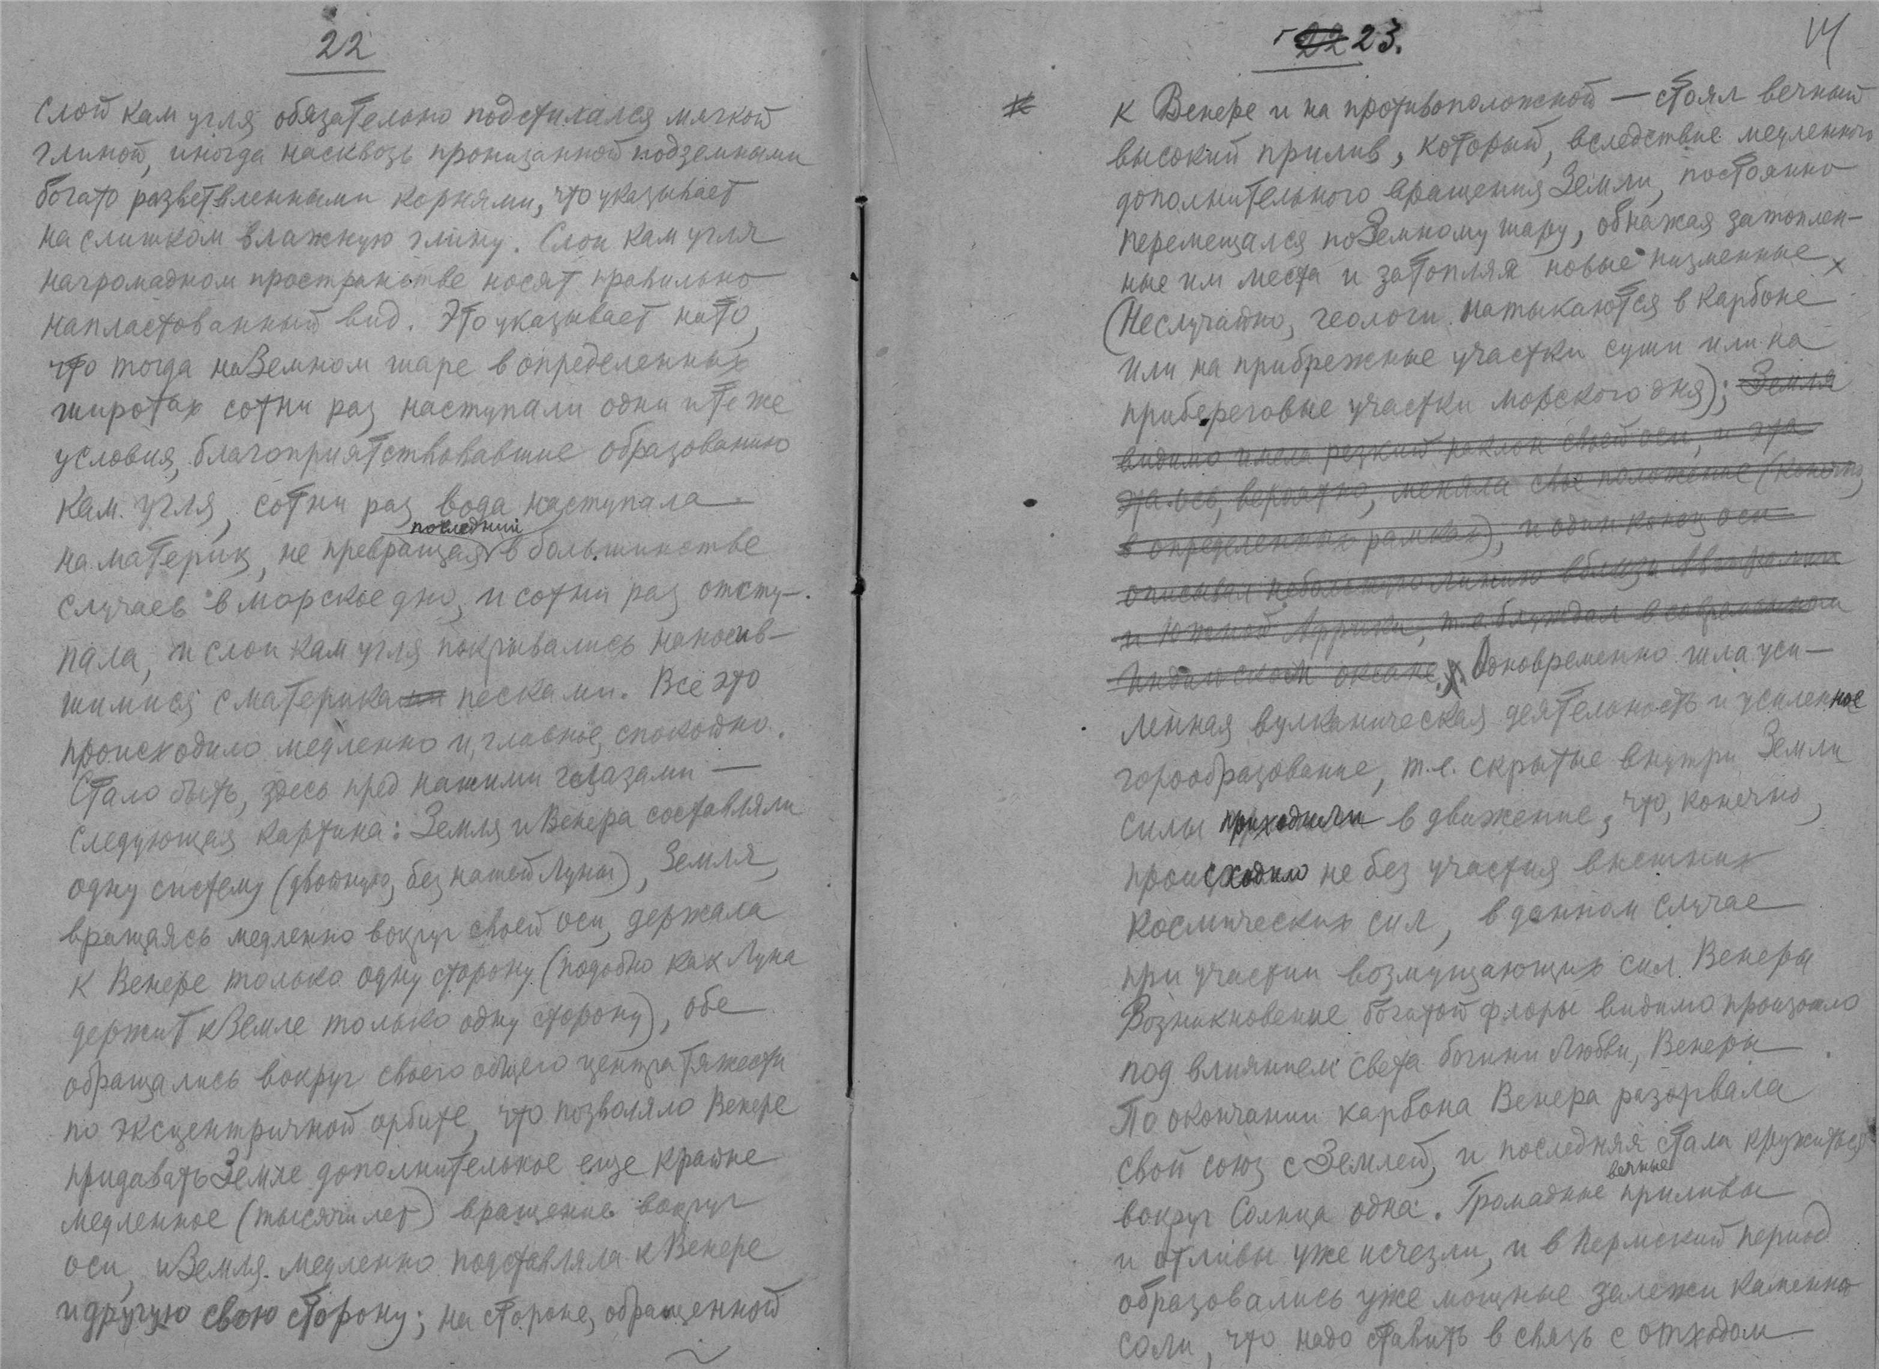 22
слой кам угля обязательно подстилался мягкой
глиной, иногда насквозь пронизанной подземными
богато разветвленными корнями, что указывает
на слишком влажную глину. Слои кам угля
на громадном пространстве носят правильно
напластованный вид. Это указывает на то,
что тогда на Земном шаре в определенных
широтах сотни раз наступали одни и те же
условия, благоприятствовавшие образованию
кам. угля, сотни раз вода наступала
последний
на материк, не превращая в большинстве
случаев в морское дно, и сотни раз отсту-
пала, и слои кам угля покрывались наносив-
шимися с материка песками. Всё это
происходило медленно и, главное, спокойно.
Стало быть, здесь пред нашими глазами —
следующая картина: Земля и Венера составляли
одну систему (двойную, без нашей Луны), Земля,
вращаясь медленно вокруг своей оси, держала
к Венере только одну сторону (подобно как Луна
держит к Земле только одну сторону), обе
обращались вокруг своего общего центра тяжести
по эксцентричной орбите, что позволяло Венере
придавать Земле дополнительное еще крайне
медленное (тысячи лет) вращение вокруг
оси, и Земля медленно подставляла к Венере
и другую свою сторону; на стороне, обращенной
22 23.
14
к Венере и на противоположной — стоял вечный
высокий прилив, который, вследствие медленного
дополнительного вращения Земли, постоянно
перемещался по Земному шару, обнажая затоплен-
ные им места и затопляя новые низменные
(Неслучайно, геологи натыкаются в Карбоне
или на прибрежные участки суши или на
прибереговые участки морского дна); Земля
видимо имела резкий наклон своей оси, и эта
ось, вероятно, меняла свое положение (конечно,
в определенных рамках), и один конец оси
описывал небольшую линию вблизи Австралии
и Южной Африки, т.е. блуждал в современном
Индийском океане. Одновременно шла уси-
ленная вулканическая деятельность и усиленное
горообразование, т.е. скрытые внутри Земли
силы приходили в движение, что, конечно,
происходило не без участия внешних
космических сил, в данном случае
при участии возмущающих сил Венеры
Возникновение богатой флоры видимо произошло
под влиянием света богини Любви, Венеры
По окончании карбона Венера разорвала
свой союз с Землей, и последняя стала кружиться
вечные
вокруг Солнца одна. Громадные приливы
и отливы уже исчезли, и в Пермский период
образовались уже мощные залежи каменной
соли, что надо ставить в связь с отходом